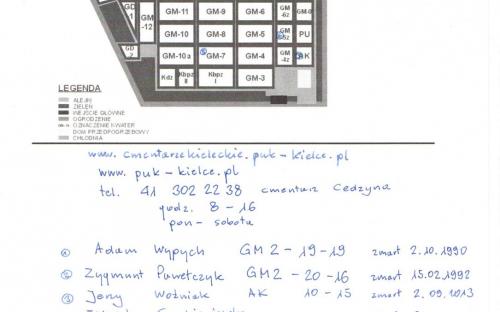 GM-11 GM-9 GM-6 GM-6z GM-0
GD-1 GM-12
GM-10 GM-8 GM-5 GM-5z PU
GD-2 GM-10a GM-7 GM-4 GM-4z AK
Kdz Kbpz II Kbpz I GM-3
LEGENDA
ALEJKI
ZIELEŃ
WEJŚCIE GŁÓWNE
OGRODZENIE
OZNACZENIE KWATER
DOM PRZEDPOGRZEBOWY
CHŁODNIA
www.cmentarzekieleckie.puk-kielce.pl
www.puk-kielce.pl
tel. 41 302 22 38 cmentarz Cedzyna
godz. 8 - 16
pon - sobota
1 Adam Wypych GM 2 - 19 - 19 zmarł 2.10.1990
2 Zygmunt Pawełczyk GM 2 - 20 - 16 zmarł 15.02.1992
3 Jerzy Woźniak AK 10 - 15 zmarł 2.09.2013